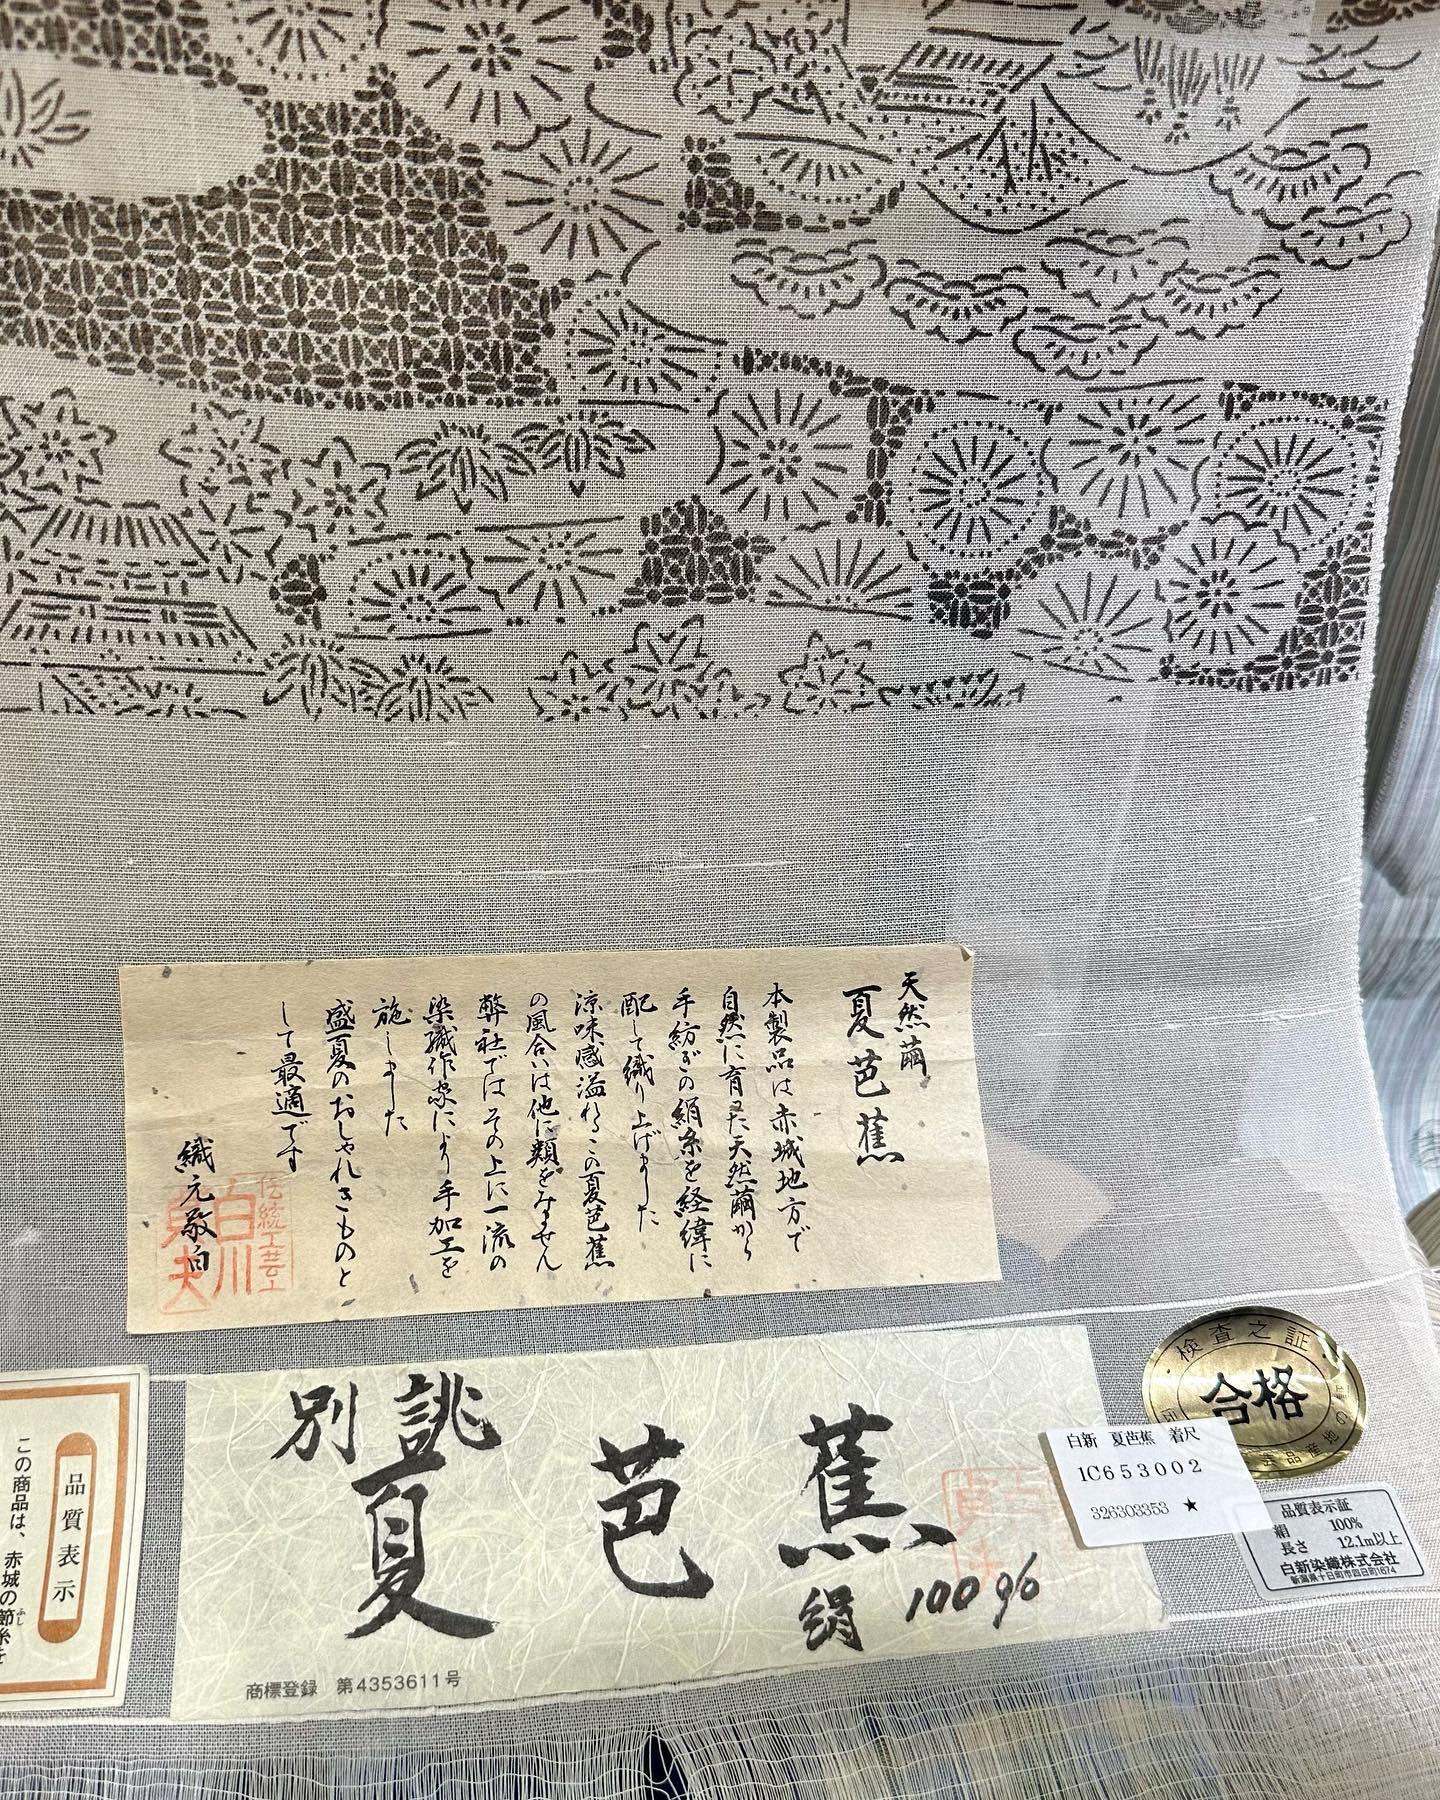 天然繭
夏芭蕉
本製品は赤城地方で
自然に育った天然繭から
手紡ぎの絹糸を経緯に
配して織り上げました
涼味感溢れるこの夏芭蕉
の風合いは他に類をみません
弊社ではその上に一流の
染織作家により手加工を
施しました
盛夏のおしゃれきものと
して最適です
織元敬白
伝統工芸士
白川
別誂
夏芭蕉
絹100%
商標登録 第4353611号
検査之証
合格
白新 夏芭蕉 着尺
1C653002
326303353 ★
品質表示証
絹 100%
長さ 12.1m以上
白新染織株式会社
新潟県十日町市四日町1674
品質表示
この商品は、赤城の節糸を
ふし